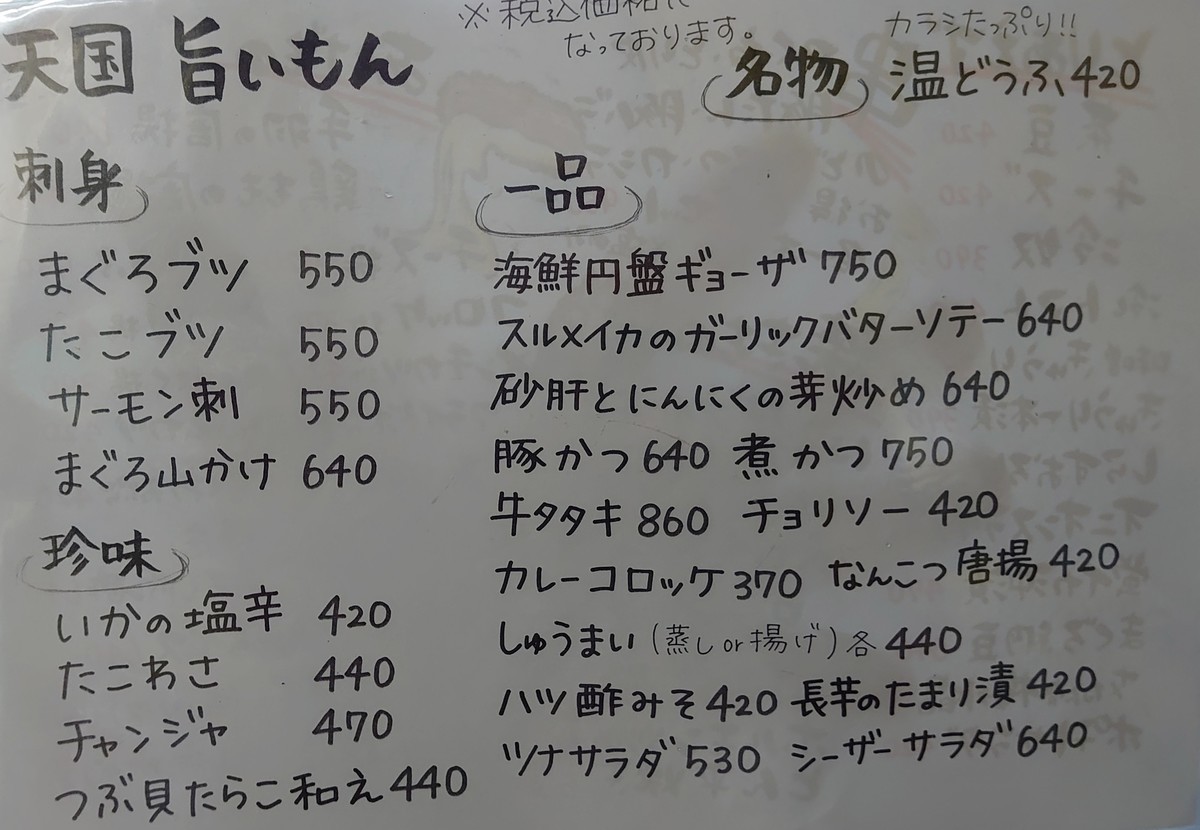 天国 旨いもん
※税込価格に
なっております。
カラシたっぷり!!
名物 温どうふ、420
刺身
まぐろブツ 550
たこブツ 550
サーモン刺 550
まぐろ山かけ 640
珍味
いかの塩辛 420
たこわさ 440
チャンジャ 470
つぶ貝たらこ和え 440
一品
海鮮円盤ギョーザ 750
スルメイカのガーリックバターソテー 640
砂肝とにんにくの芽炒め 640
豚かつ 640 煮かつ 750
牛タタキ 860 チョリソー 420
カレーコロッケ 370 なんこつ唐揚 420
しゅうまい(蒸しor揚げ)各 440
ハツ酢みそ 420 長芋のたまり漬 420
ツナサラダ 530 シーザーサラダ 640